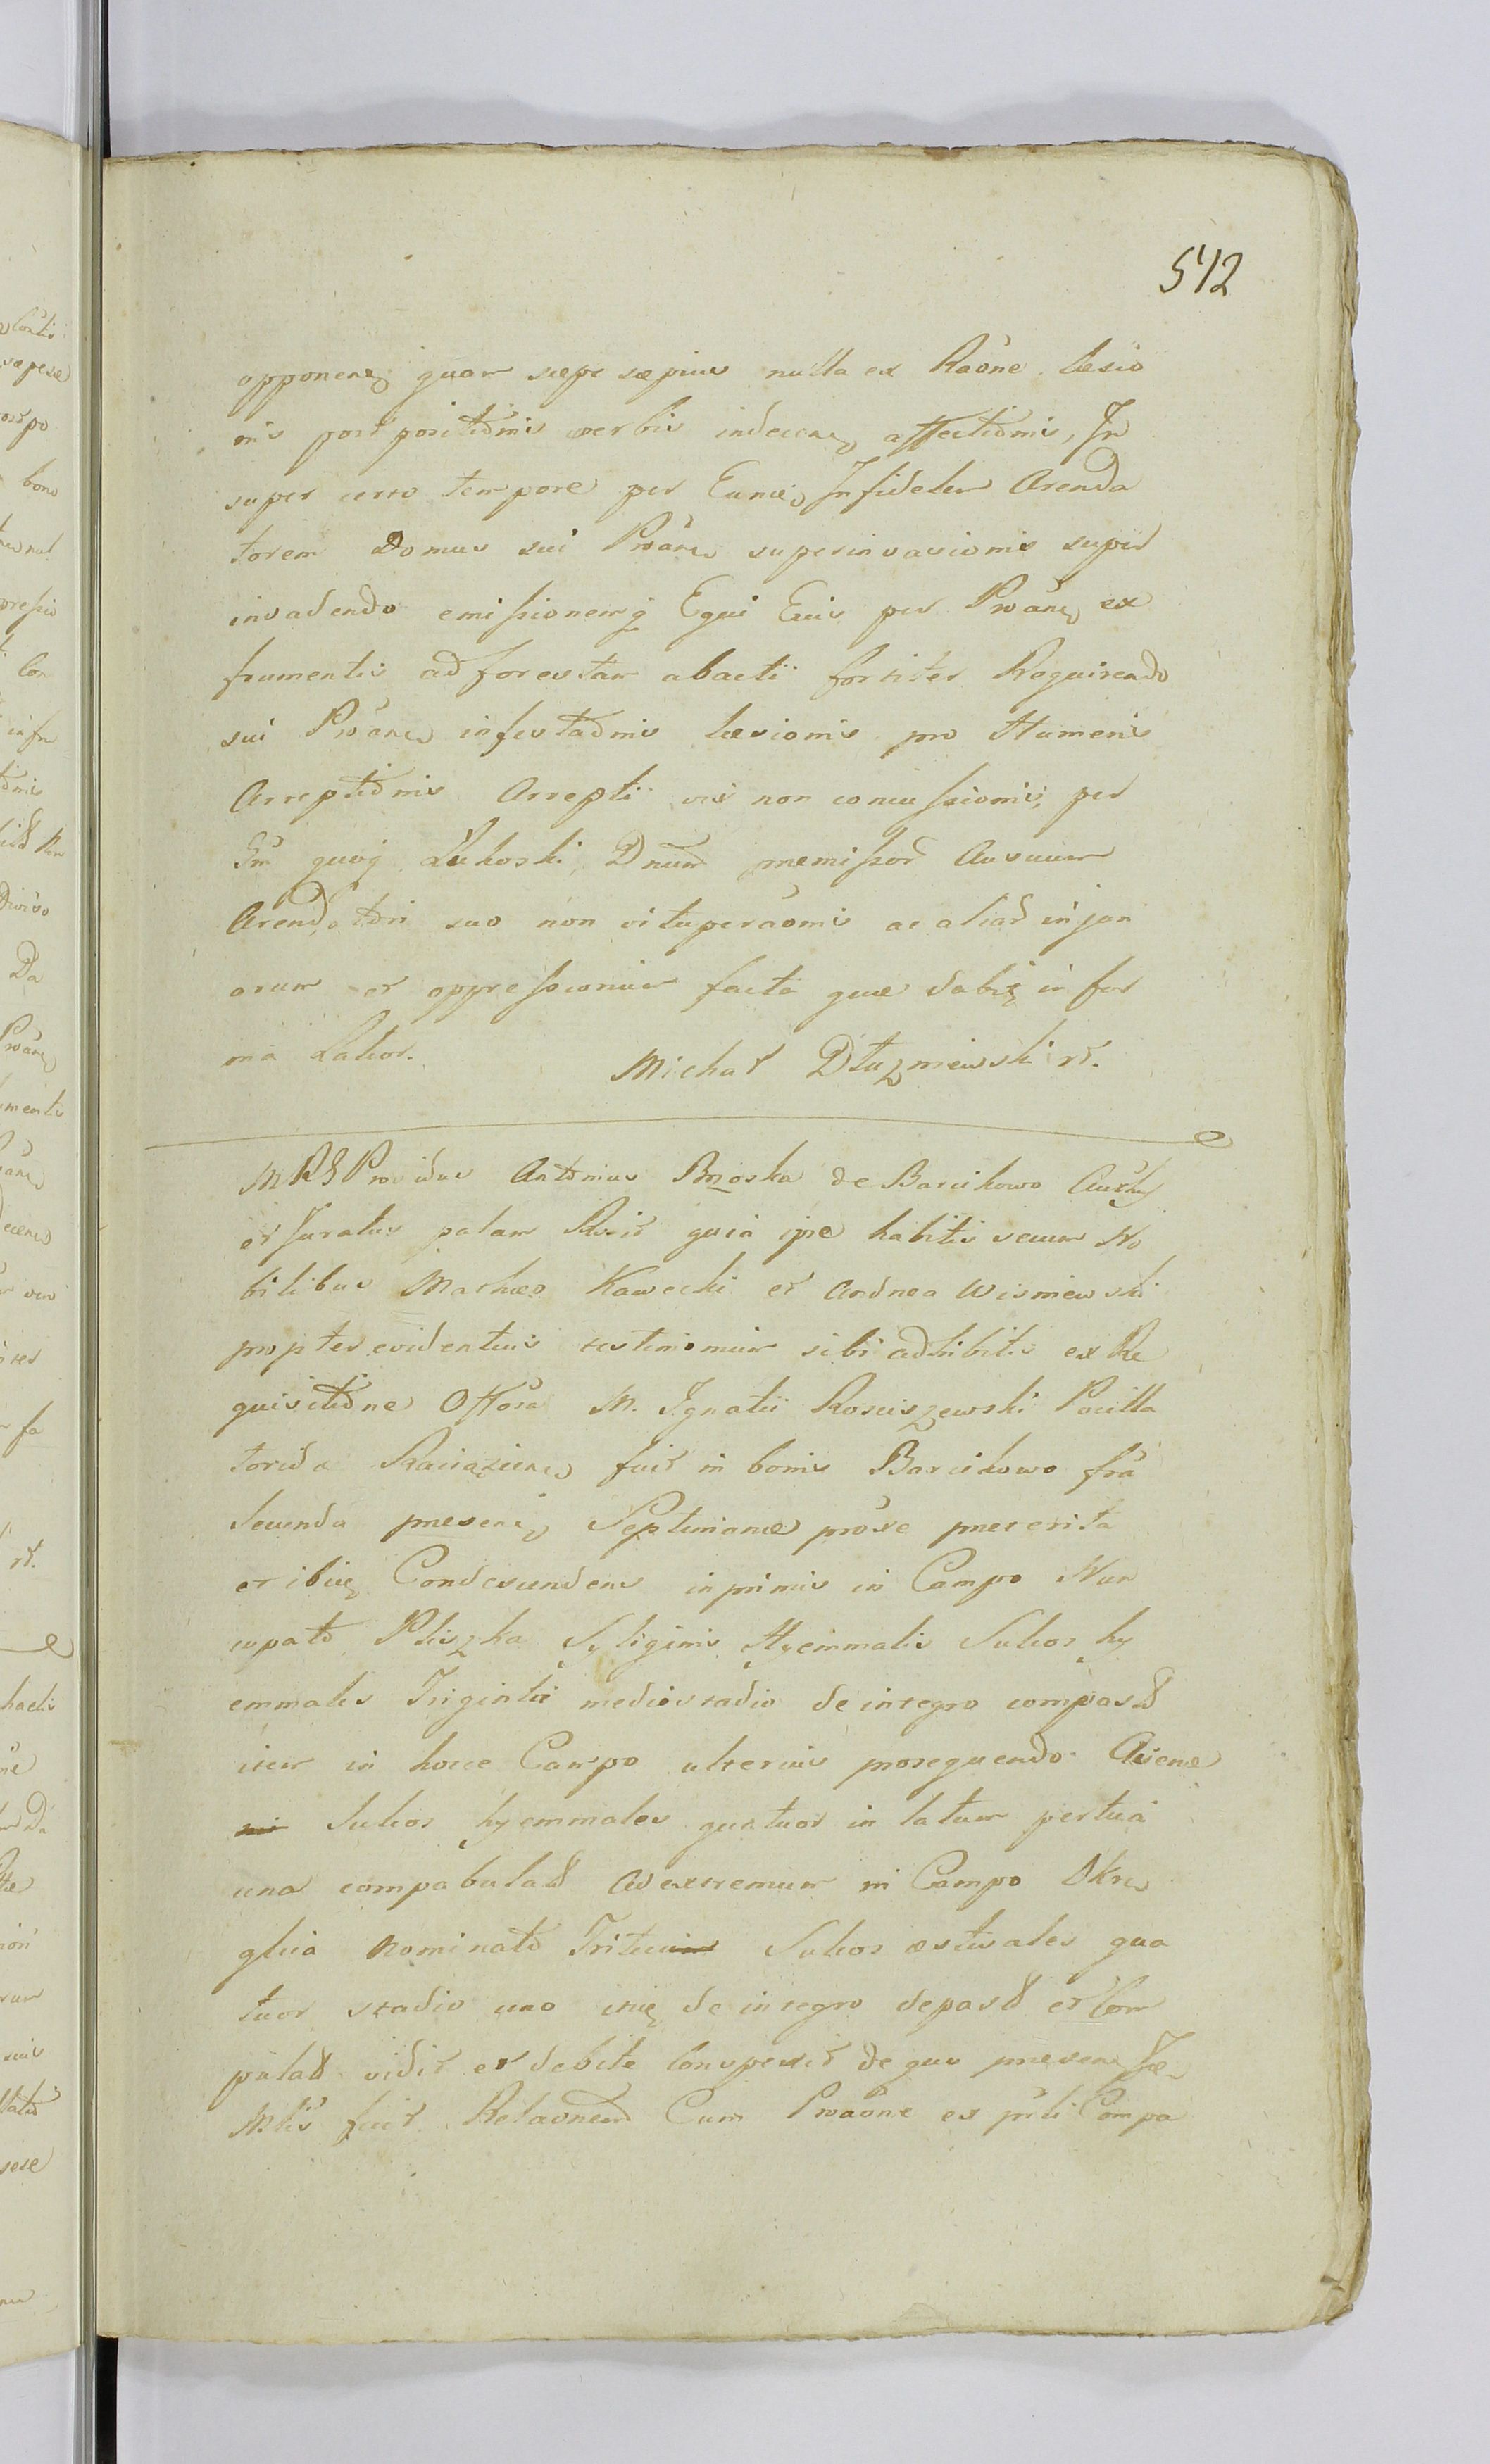 542
opponeñ quam sæpe sæpius nulla ex Raône læsio
nis postpositiõnis verbis indeceñ affectiõnis, In
super certo tempore per Eund Infidelem Arenda
torem Domus sui Proâñ superinvasionis super
invadendo emissionemq Equi Eius per Proâñ ex
frumentis ad forestam abactii fortiter Requirendo
sui Proâñ infestaõnis læsionis pro Humeris
Arreptiõnis Arrepti vis non concussionis, per
quoq Lukoski Dnum præmissor Ausuum
Arendatõri suo non vituperaônis ac aliar injuri
arum et oppressionum facta quæ dabit in for
ma Latior.
Michał Dłuzniewski rt.
MRS Providus Antonius Brzoska de Barcikowo
et Juratus palam Rcit quia ipse habitis secum No
bilibus Mathæo Kawecki et Andrea Wisniewski
propter evidentius testimonium sibi adhibitis ex Re
quisitiõne Offôsa M. Ignatii Rosciszewski Pocilla
torida Raciązieñ fuit in bonis Barcikowo frâ
Secunda præseñ Septimanæ prôxe præterita
et ibiq Condescendens inprimis in Campo Nun
cupatõ Pliszka Syliginis Hyemmalis Sulcos hy
emmales Triginta medio stadio de integro compast
item in hocce Campo ulterius prosequendo Avenæ
Sulcos hyemmales quatuor in latum pertica
una compabulat Ad extremum in Campo Okre
glica nominatõ Tritici Sulcos æstivales qua
tuor stadio uno itiq de integro depast et Com
pulat vidit et debite Conspexit de quo præseñ
Mtis fecit Relaõnem Cum Proâône ex prti Compa